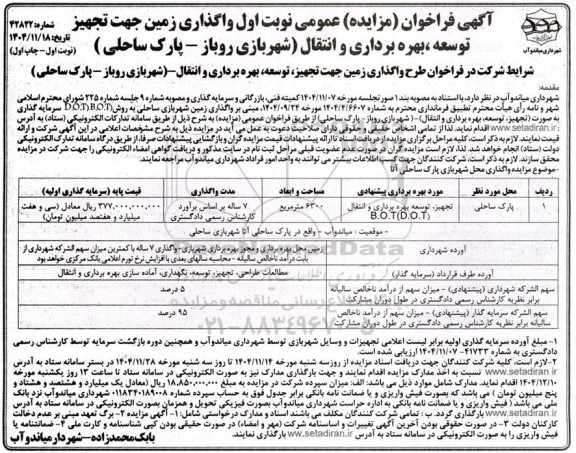 آگهی فراخوان (مزایده) عمومی نوبت اول واگذاری زمین جهت تجهیز
توسعه ،بهره برداری و انتقال (شهربازی روباز – پارک ساحلی )
شماره: ۴۳۸۲۲
تاریخ: ۱۴۰۴/۱۱/۱۸
(نوبت اول - چاپ اول)
شهرداری میاندوآب
شرایط شرکت در فراخوان طرح واگذاری زمین جهت تجهیز، توسعه، بهره برداری و انتقال-(شهربازی روباز – پارک ساحلی)
مقدمه:
شهرداری میاندوآب در نظر دارد، با استناد به مصوبه بند ۱ صورتجلسه مورخه ۱۴۰۴/۱۱/۰۷ کمیته فنی، بازرگانی و سرمایه گذاری و مصوبه شماره ۹ جلسه شماره ۲۲۵ شورای محترم اسلامی
شهر و نامه رأی هیأت محترم تطبیق فرمانداری محترم به شماره ۱۴۰۴/۴/۶۶۰۷ مورخه ۱۴۰۴/۰۹/۲۴، مبنی بر واگذاری زمین شهربازی ساحلی به روش D.O.T)B.O.T) سرمایه گذاری
به صورت (تجهیز، توسعه، بهره برداری و انتقال)-( شهربازی روباز - پارک ساحلی) از طریق فراخوان عمومی (مزایده) به شرح ذیل از طریق سامانه تدارکات الکترونیکی (ستاد) به آدرس
www.setadiran.ir اقدام نمایند. لذا از تمامی اشخاص حقیقی و حقوقی دارای صلاحیت دعوت به عمل می آید در مزایده ذیل به شرح مشخصات اعلامی در این آگهی شرکت و ارائه
قیمت نمایند. لازم به ذکر است، کلیه مراحل برگزاری مزایده از دریافت اسناد تا ارائه پیشنهادات قیمت مزایده گران و بازگشایی پیشنهادات صرفا از طریق درگاه سامانه تدارکات الکترونیکی
دولت (ستاد) انجام خواهد شد. لذا، لازم است مزایده گران در صورت عدم عضویت قبلی مراحل ثبت نام در سایت مذکور و دریافت گواهی امضاء الکترونیکی را جهت شرکت در مزایده
محقق سازند. لازم به ذکر است، شرکت کنندگان جهت کسب اطلاعات بیشتر می توانند به واحد امور قراداد شهرداری میاندوآب مراجعه نمایند.
-موضوع مزایده واگذاری محل شهربازی پارک ساحلی آتا
ردیف | محل مورد نظر | مورد بهره برداری پیشنهادی | مساحت و ابعاد | مدت واگذاری | قیمت پایه (سرمایه گذاری اولیه)
۱ | پارک ساحلی | تجهیز، توسعه، بهره برداری و انتقال B.O.T(D.O.T) | ۶۳۰۰ مترمربع | ۷ ساله بر اساس برآورد کارشناس رسمی دادگستری | ۳۷۷,۰۰۰,۰۰۰,۰۰۰ ریال معادل (سی و هفت میلیارد و هفتصد میلیون تومان)
- موقعیت : میاندوآب – واقع در پارک ساحلی آتا شهربازی ساحلی
آورده شهرداری | زمین محل بهره برداری و مجوز بهره برداری شهربازی-واگذاری ۷ ساله با کمترین میزان سهم الشرکه شهرداری از بابت درآمد ناخالص سالیانه – محاسبه سالهای بعدی با افزایش نرخ تورم اعلامی بانک مرکزی خواهد بود
آورده طرف قرارداد (سرمایه گذار) | مطالعات طراحی، تجهیز، توسعه، نگهداری، آماده سازی بهره برداری و انتقال
سهم الشرکه شهرداری (پیشنهادی) – میزان سهم از درآمد ناخالص سالیانه برابر نظریه کارشناس رسمی دادگستری در طول دوران مشارکت | ۵ درصد
سهم الشرکه سرمایه گذار (پیشنهادی) – میزان سهم از درآمد ناخالص سالیانه برابر نظریه کارشناس رسمی دادگستری در طول دوران مشارکت | ۹۵ درصد
۱ – مبلغ آورده سرمایه گذاری اولیه برابر لیست اعلامی تجهیزات و وسایل شهربازی توسط شهرداری میاندوآب و همچنین دوره بازگشت سرمایه توسط کارشناس رسمی
دادگستری به شماره ۴۱۷۳۳-۱۴۰۴/۱۱/۰۷ ارزیابی شده است.
۲-لازم است، کلیه شرکت کنندگان جهت دریافت اسناد مزایده از روز سه شنبه مورخ ۱۴۰۴/۱۱/۱۴ تا روز سه شنبه مورخه ۱۴۰۴/۱۱/۲۸ در بستر سامانه ستاد به آدرس
www.setadiran.ir نسبت به اخذ مدارک مزایده اقدام نمایند و جهت بارگذاری مدارک نیز به صورت الکترونیکی در سامانه ستاد تا ساعت ۱۳ روز یکشنبه مورخه
۱۴۰۴/۱۲/۱۰ اقدام نمایند. مدارک شامل موارد ذیل می باشد: الف: میزان سپرده شرکت در مزایده به مبلغ ۱۸,۸۵۰,۰۰۰,۰۰۰ ریال (معادل یک میلیارد و هشتصد و هشتاد و
پنج میلیون تومان ) می باشد که بصورت فیش واریزی و یا ضمانت نامه بانکی برابر جدول فوق به حساب سپرده شماره ۰۱۱۸۳۴۰۱۸۹۰۰۸ شهرداری میاندوآب نزد بانک
ملی می باشد. ( فیش واریزی و یا ضمانت نامه بانکی به اداره حراست شهرداری میاندوآب به صورت فیزیکی تحویل و همزمان بصورت الکترونیکی در سامانه ستاد به آدرس
www.setadiran.ir بارگذاری گردد. ب : تمامی شرکت کنندگان مکلف می باشند اسناد و مدارک درخواستی شامل: ۱- آگهی مزایده ۲- برگ تعهد مبنی بر عدم دخالت
کارکنان دولت ۳- در صورت حقوقی بودن آخرین آگهی تغییرات و اساسنامه شرکت (مهر و امضاء) در صورت حقیقی بودن کپی شناسنامه و کارت ملی ۴- ضمانتنامه یا
فیش واریزی را به صورت الکترونیکی در سامانه ستاد به آدرس www.setadiran.ir بارگذاری نمایند.
بابک محمدزاده – شهردار میاندوآب
۰۲۱-۸۸۳۴۹۶۷۰